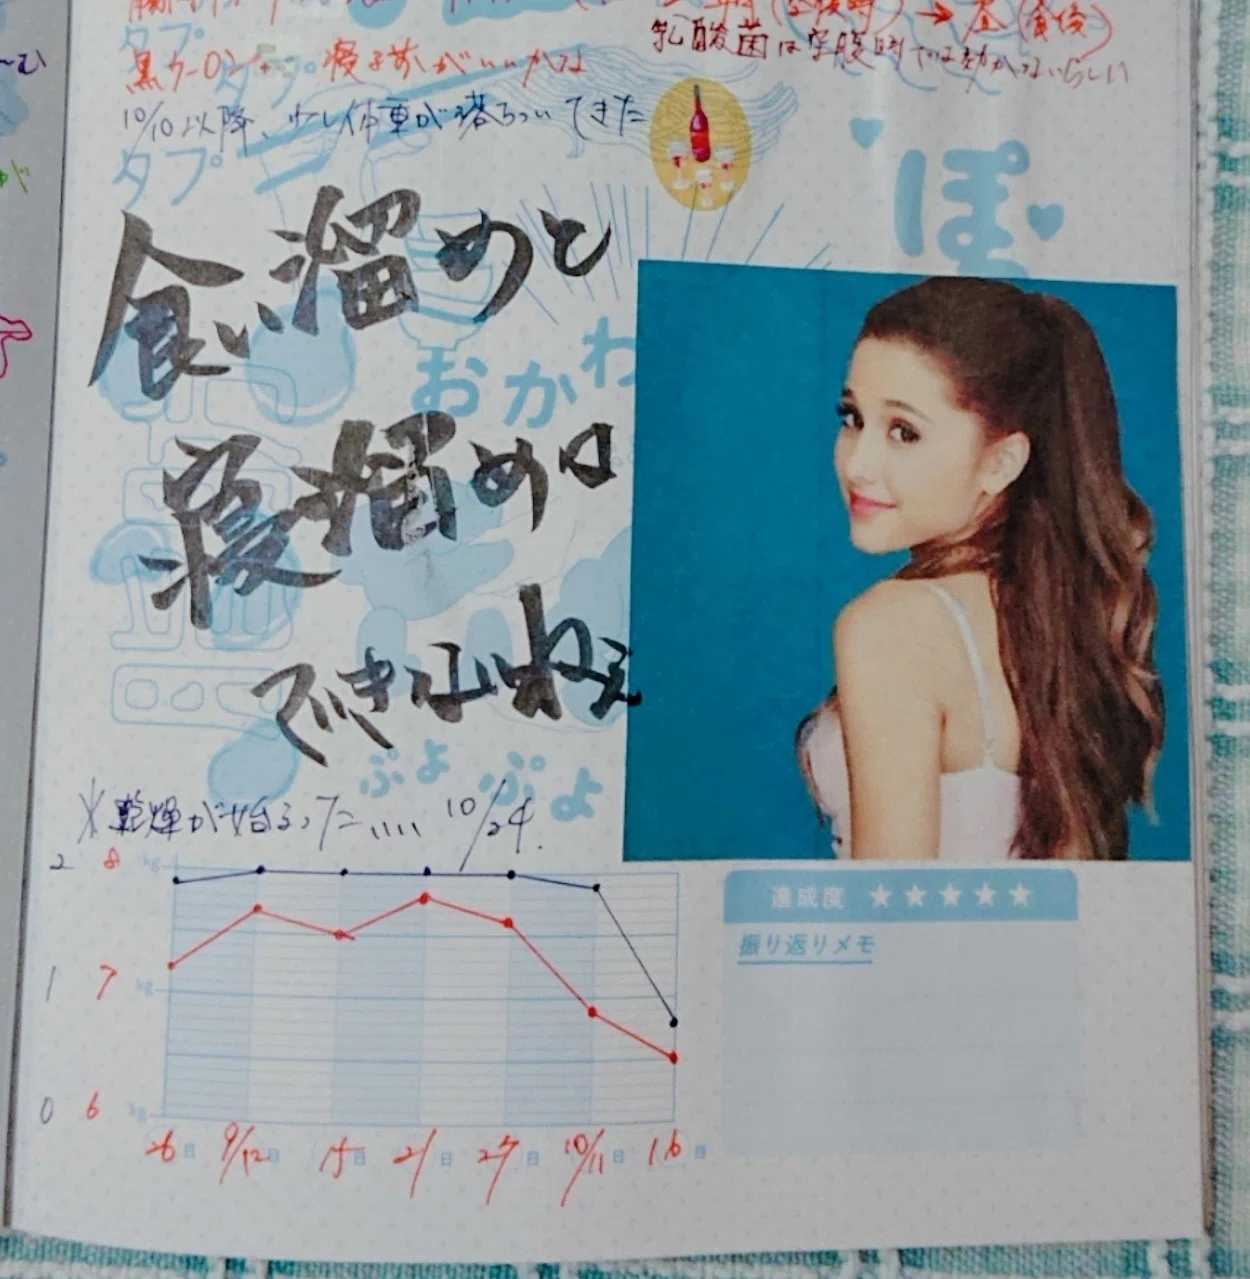 タプ
黒ウーロン 寝る前がいいかな
昼(食後)
乳酸菌は空腹時では効かないらしい
10/10以降、少し体重が落ちついてきた
タプ
タプ
ぽ
食い溜めと
おかわ
寝溜めは
できないねぇ
ぷよ ぷよ
※乾燥が始まった、、、、 10/24.
2 8 kg
1 7 kg
0 6 kg
26日 9/12日 15日 21日 27日 10/11日 16日
達成度 ★★★★★
振り返りメモ